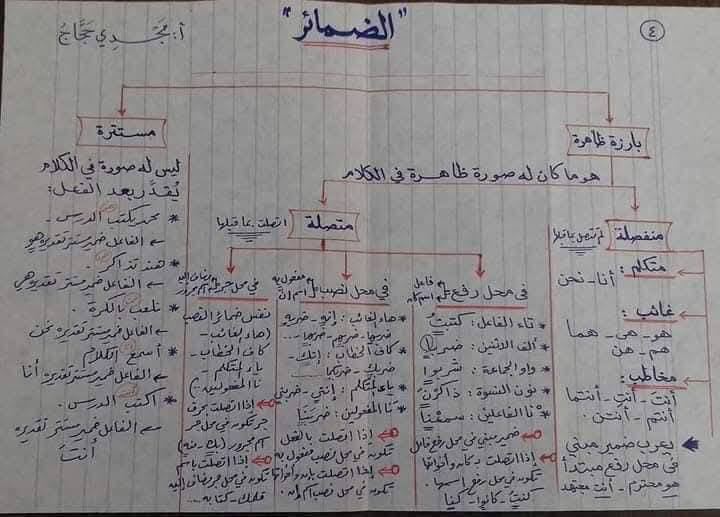 ٤
"الضمائر"
أ: مجدي حجاج
بارزة ظاهرة
هو ما كان له صورة ظاهرة في الكلام
منفصلة لم تتصل بما قبلها
متكلم:
أنا - نحن
غائب:
هو - هي - هما
هم - هن
مخاطب:
أنتَ - أنتِ - أنتما
أنتم - أنتن.
يعرب ضمير مبني
في محل رفع مبتدأ
هو محترم - أنت مجتهد
متصلة اتصلت بما قبلها
في محل رفع فاعل
اسم كان
* تاء الفاعل: كتبتُ
* ألف الاثنين: ضربا
* واو الجماعة: شربوا
* نون النسوة: ذاكرْنَ
* نا الفاعلين: سمعْنا
ضمير مبني في محل رفع فاعل
إذا اتصلت بكان وأخواتها
تكون في محل رفع اسمها.
كنت - كانوا - كنا
في محل نصب مفعول به
اسم إن
* هاء الغائب: إنه - ضربه
ضربها - ضربهم - ضربهما..
* كاف الخطاب: إنك -
ضربك - ضربكما
* ياء المتكلم: إنني - ضربني
* نا المفعولين: ضربَنا
إذا اتصلت بالفعل
تكون في محل نصب مفعول به
إذا اتصلت بإن وأخواتها
تكون في محل نصب اسم إن.
في محل جر مضاف إليه
اسم مجرور
نفس ضمائر النصب
(هاء الغائب -
كاف الخطاب -
ياء المتكلم -
نا المفعولين -)
إذا اتصلت بحرف
جر تكون في محل جر
اسم مجرور (بك - فيه)
إذا اتصلت باسم
تكون في محل جر مضاف إليه
قلمك - كتابه ....
مستترة
ليس له صورة في الكلام
يُقدَّر بعد الفعل:
* محمد يكتب الدرس -
← الفاعل ضمير مستتر تقديره هو
* هند تذاكر
← الفاعل ضمير مستتر تقديره هي
* نلعب بالكرة.
← الفاعل ضمير مستتر تقديره نحن
* أسمع الكلام
← الفاعل ضمير مستتر تقديره أنا
* اكتب الدرس.
← الفاعل ضمير مستتر تقديره
أنت